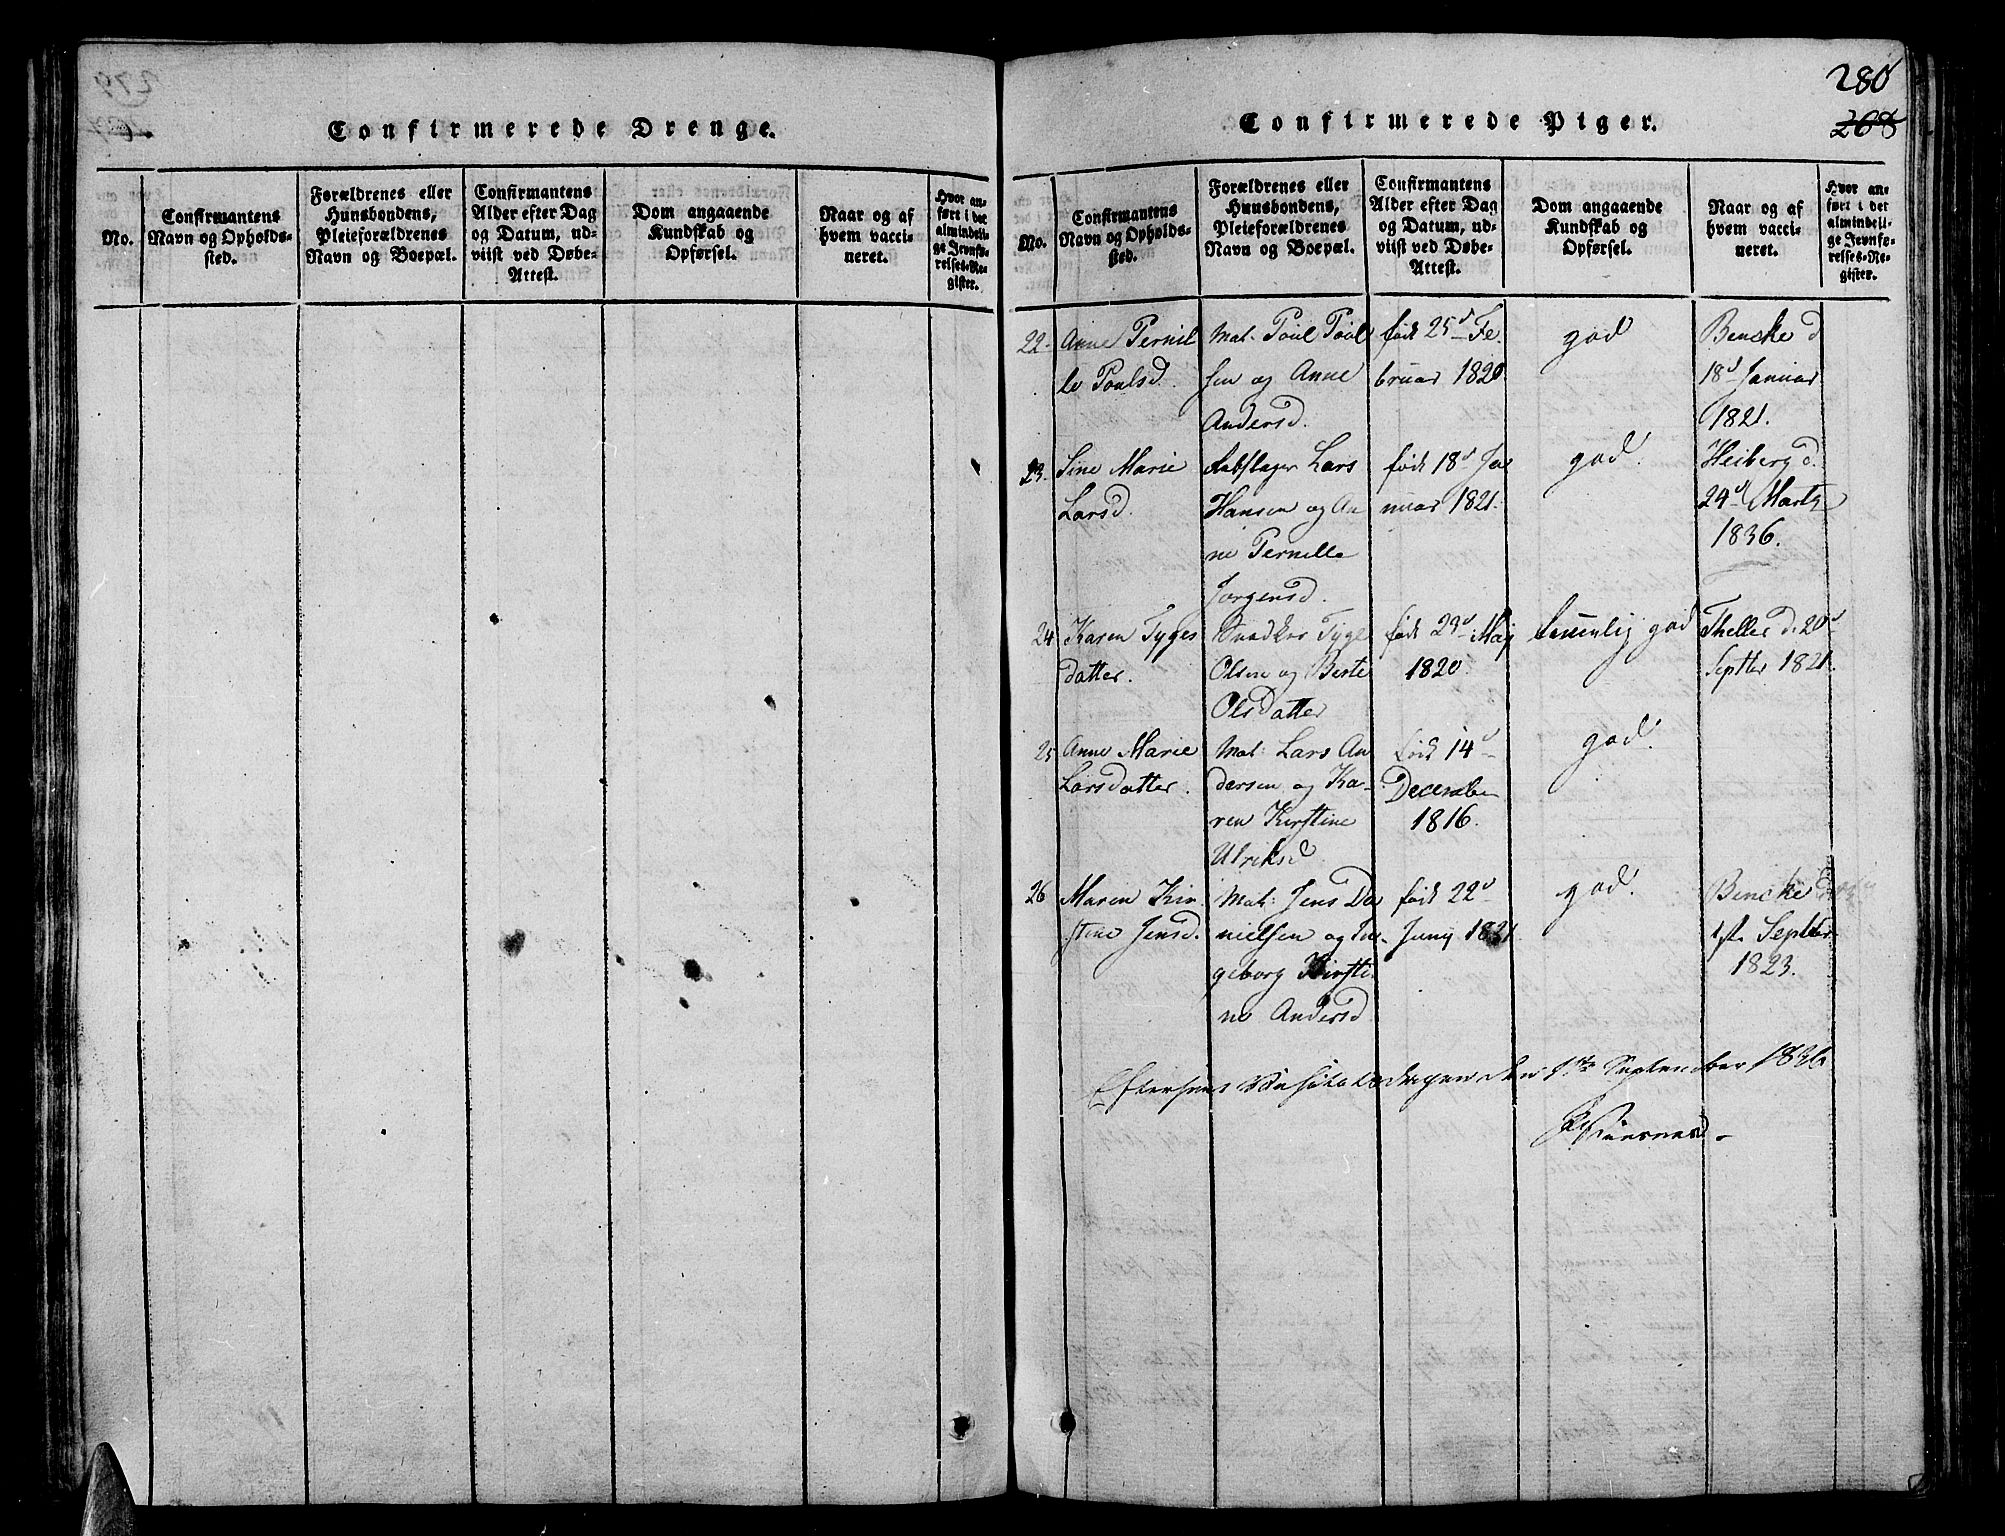 Confirmerede Drenge.
No.
Confirmantens
Navn og Opholds-
sted.
Forældrenes eller
Huusbondens,
Pleieforældrenes
Navn og Boepæl.
Confirmantens
Alder efter Dag
og Datum, ud-
viist ved Døbe-
Attest.
Dom angaaende
Kundskab og
Opførsel.
Naar og af
hvem vacci-
neret.
Hvor an-
ført i det
almindeli-
ge Jevnfø-
relses-Re-
gister.
280
268
Confirmerede Piger.
No.
Confirmantens
Navn og Opholds-
sted.
Forældrenes eller
Huusbondens,
Pleieforældrenes
Navn og Boepæl.
Confirmantens
Alder efter Dag
og Datum, ud-
viist ved Døbe-
Attest.
Dom angaaende
Kundskab og
Opførsel.
Naar og af
hvem vacci-
neret.
Hvor an-
ført i det
almindeli-
ge Jevnfø-
relses-Re-
gister.
22.
Anne Pernil
le Poulsd.
Mat. Poul Poul
sen og Anne
Andersd.
født 25d Fe
bruar 1820
god
Bencke d
18d Januar
1821.
23.
Sine Marie
Larsd.
Lars
Hansen og An
ne Pernille
Jørgensd.
født 18d Ja
nuar 1821.
god.
Heiberg d.
24d Marts
1836.
24
Karen Tyges
datter.
Tyge
Olsen og Berte
Olsdatter
født 29d Maj
1820.
temmelig god
Theller d. 20d
Septbr 1821.
25
Anne Marie
Larsdatter.
Mat: Lars An
dersen og Ka-
ren Kirstine
Ulriksd
født 14d
December
1816.
god.
26
Maren Kir
stine Jensd.
Mat: Jens Da
nielsen og In-
geborg Kirsti
ne Andersd
født 22d
Junij 1821
god.
Bencke
1ste Septbr
1823.
Eftersees den 1ste September 1836